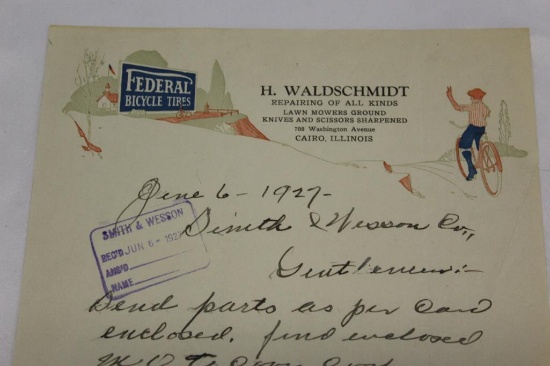 FEDERAL
BICYCLE TIRES
H. WALDSCHMIDT
REPAIRING OF ALL KINDS
LAWN MOWERS GROUND
KNIVES AND SCISSORS SHARPENED
708 Washington Avenue
CAIRO, ILLINOIS
June 6 - 1927-
SMITH & WESSON
REC'D JUN 6 - 1927
ANS'D
NAME
Smith & Wesson Co.,
Gentlemen:-
Send parts as per Card
enclosed, find enclosed
M.O. to cover